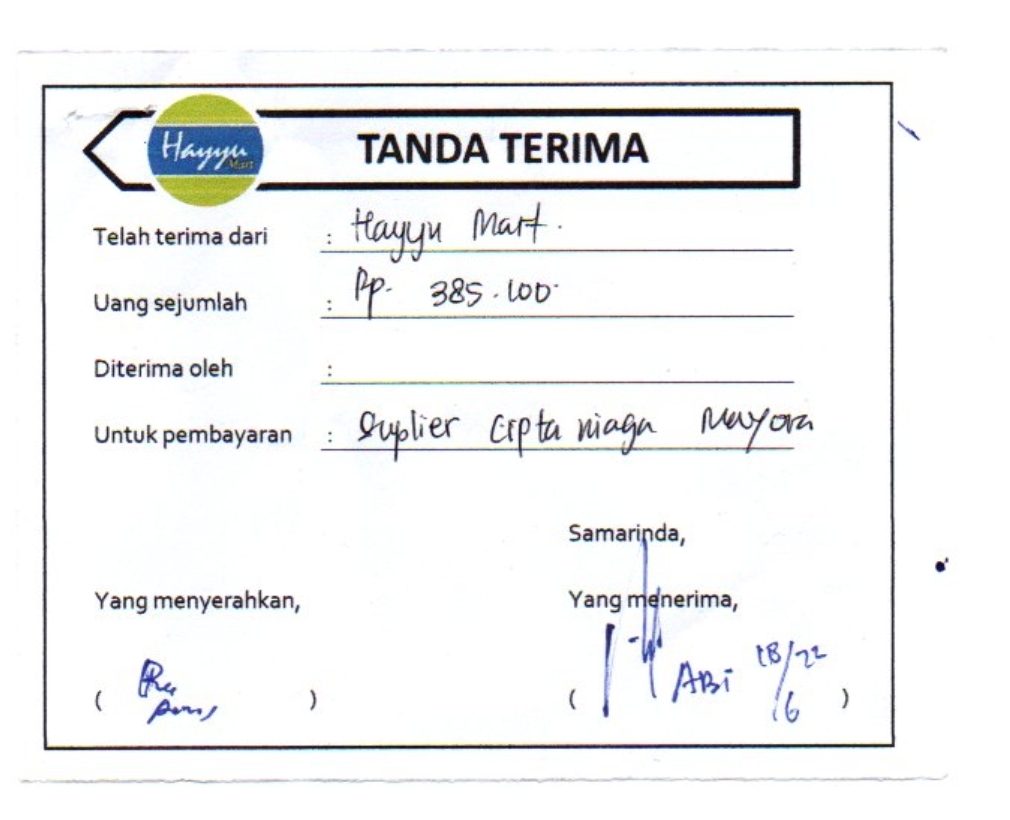 Hayyu Mart
TANDA TERIMA
Telah terima dari : Hayyu Mart.
Uang sejumlah : Rp. 385.100
Diterima oleh :
Untuk pembayaran : Suplier Cipta niaga Mayora
Samarinda,
Yang menyerahkan, Yang menerima,
( ) ( ABi 18/22
6 )